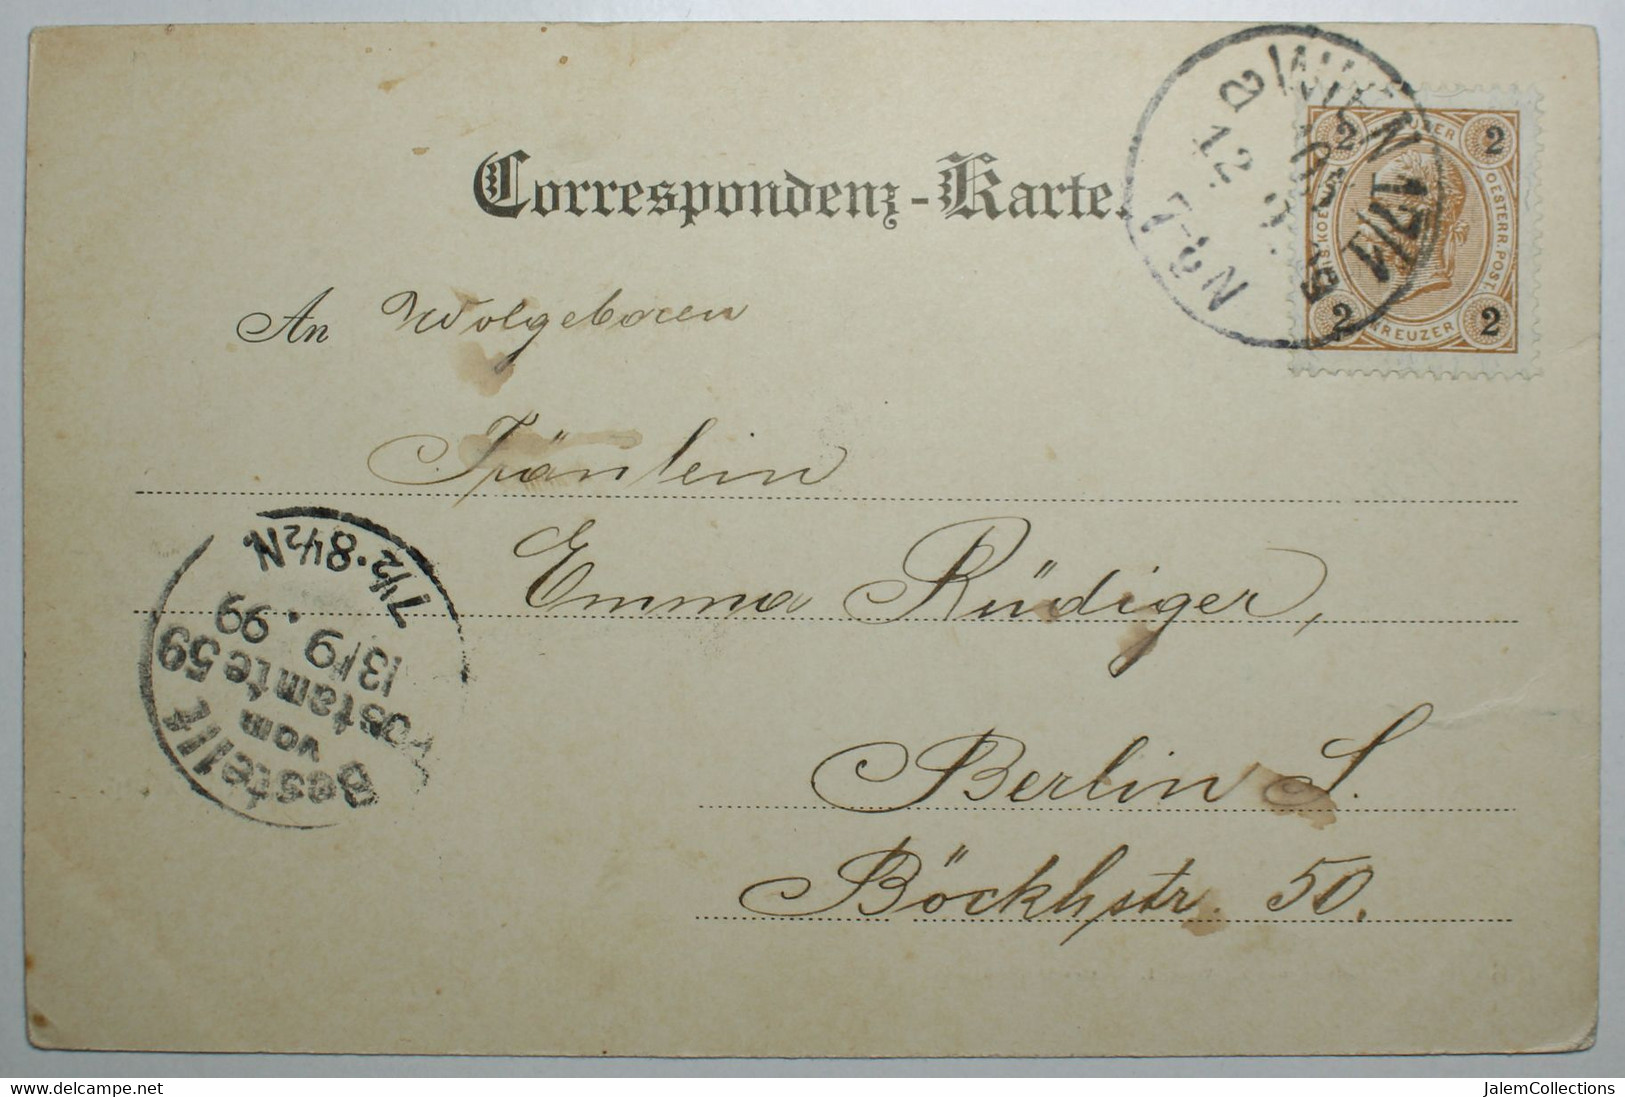 Correspondenz-Karte.
WIEN
17/1
8
12. 9.
7-9 N
2 2
2 2
KREUZER
OESTERR. POST.
KREUZER
An Wolgeboren
Fränlein
Emma Rüdiger,
Berlin S.
Böckhstr. 50.
Bestellt
vom
Postamte 59
13/9. 99
7½-8½N.
www.delcampe.net
JalemCollections